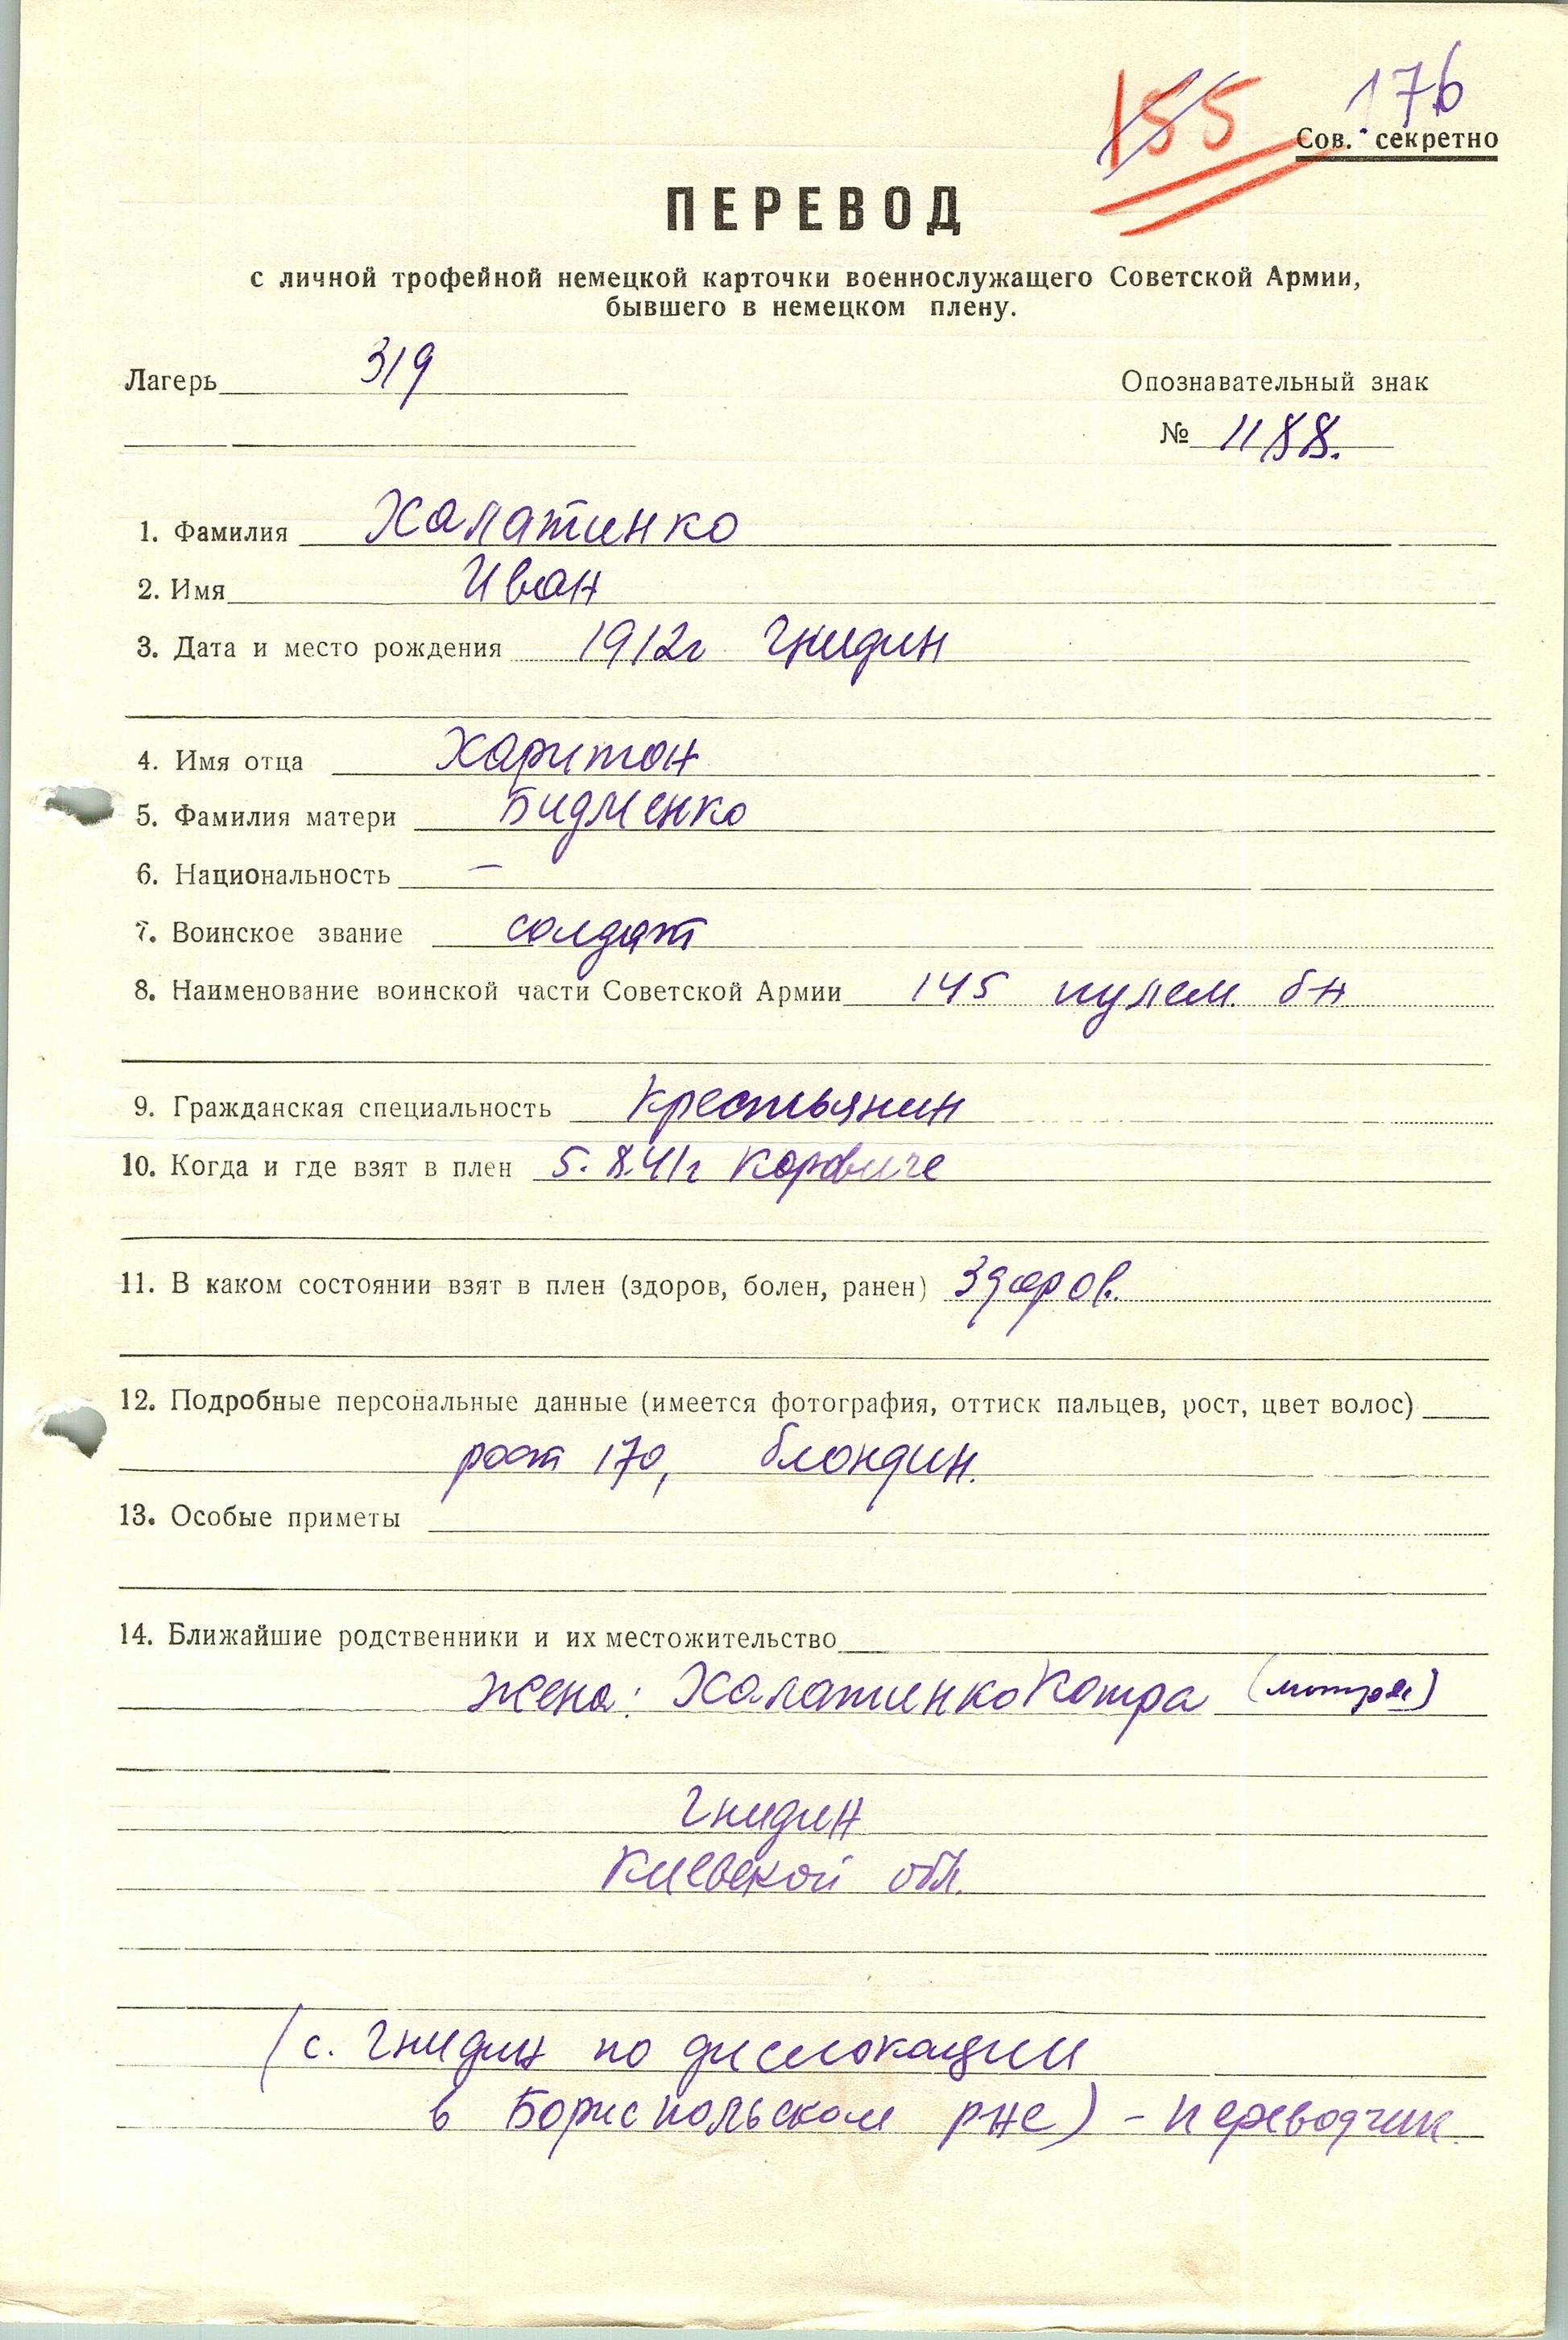 155 176
Сов. секретно
ПЕРЕВОД
с личной трофейной немецкой карточки военнослужащего Советской Армии,
бывшего в немецком плену.
Лагерь 319 Опознавательный знак
№ 1188.
1. Фамилия Халатинко
2. Имя Иван
3. Дата и место рождения 1912г Гнидин
4. Имя отца Харитон
5. Фамилия матери Бидменко
6. Национальность —
7. Воинское звание солдат
8. Наименование воинской части Советской Армии 145 пулем. бн
9. Гражданская специальность крестьянин
10. Когда и где взят в плен 5.8.41г
11. В каком состоянии взят в плен (здоров, болен, ранен) здоров.
12. Подробные персональные данные (имеется фотография, оттиск пальцев, рост, цвет волос)
рост 170, блондин.
13. Особые приметы
14. Ближайшие родственники и их местожительство
жена: Халатинко Котра (мотря)
Гнидин
Киевской обл.
(с. Гнидин по дислокации
в Бориспольском рне) - переводчик.